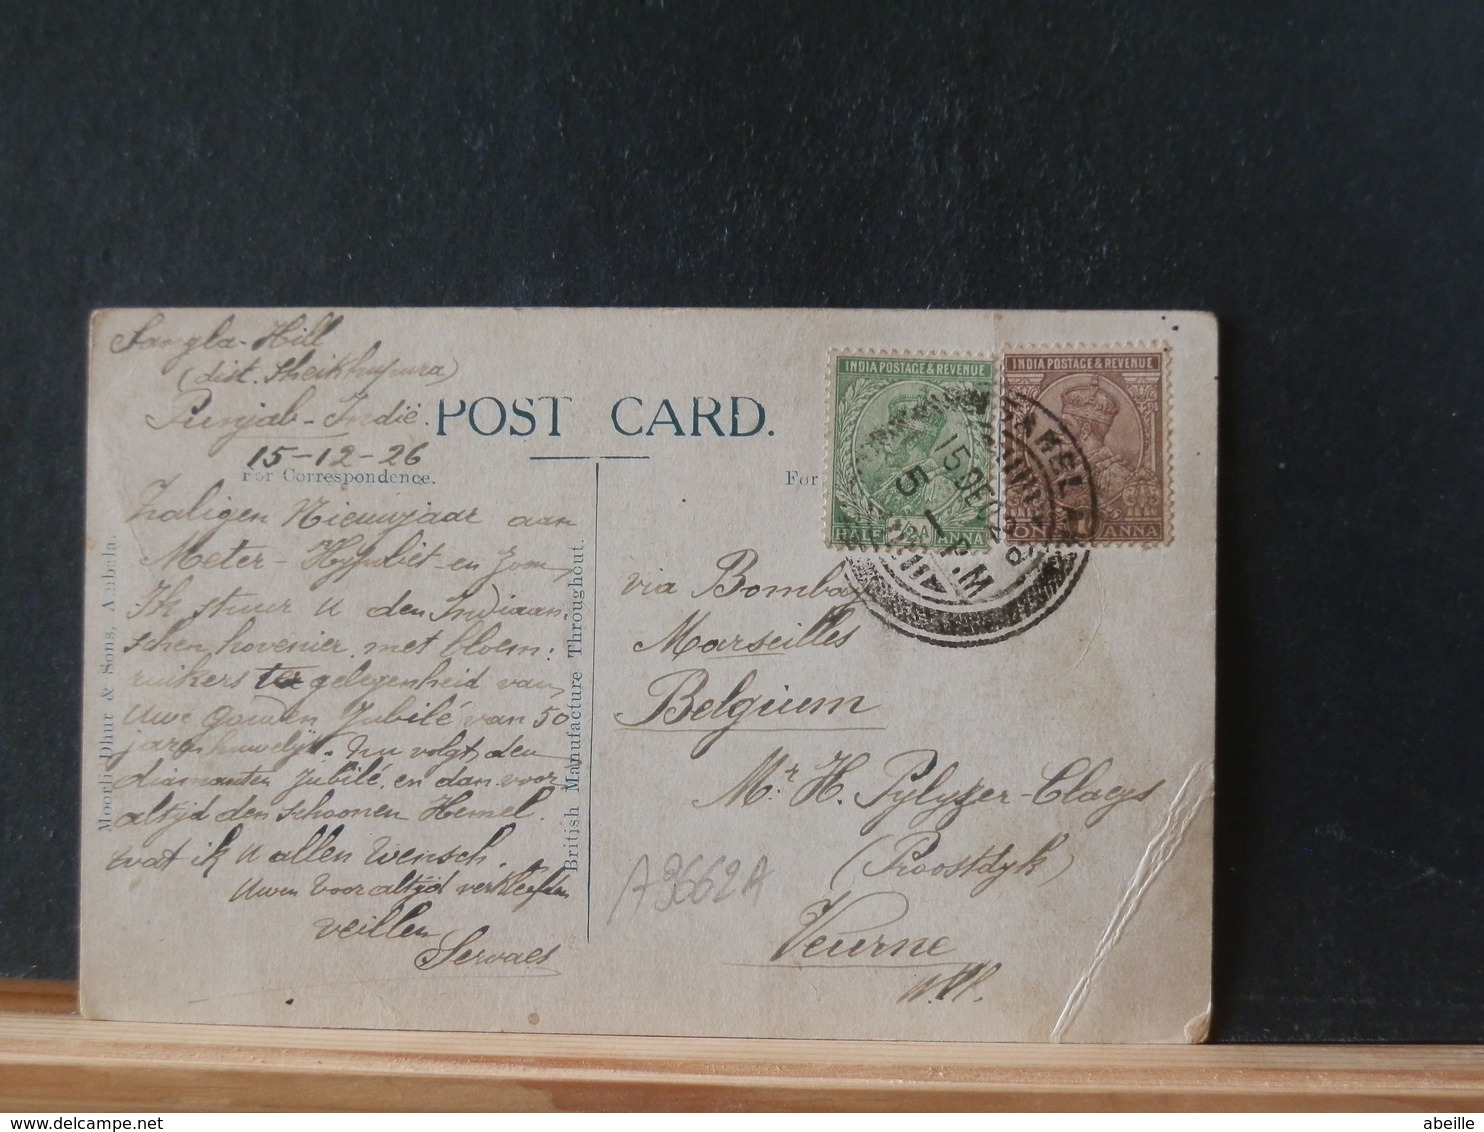 Sangla-Hill
(dist. Sheikhupura)
Punjab-Indië
15-12-26
POST CARD.
For Correspondence.
For
Zaligen Nieuwjaar aan
Meter - en
Ik stuur U den Indiaan-
schen hovenier met bloem:
ruikers te gelegenheid van
Uwe Gouden Jubilé van 50
jaren huwelijk. Nu volgt den
diamanten Jubilé, en dan voor
altyd den schoonen Hemel.
wat ik U allen wensch.
Uwen voor altyd verkleefden
veillen
Servaes
Moorli Dhur & Sons, Ambala.
British Manufacture Throughout.
INDIA POSTAGE & REVENUE
HALF ANNA
INDIA POSTAGE & REVENUE
ANNA
SANGLA
15 DEC 26
1 P.M
via Bombay
Marseilles
Belgium
Mr H. Pylyzer-Claeys
(Proostdyk)
Veurne
W.Vl.
A3662A
www.delcampe.net
abeille